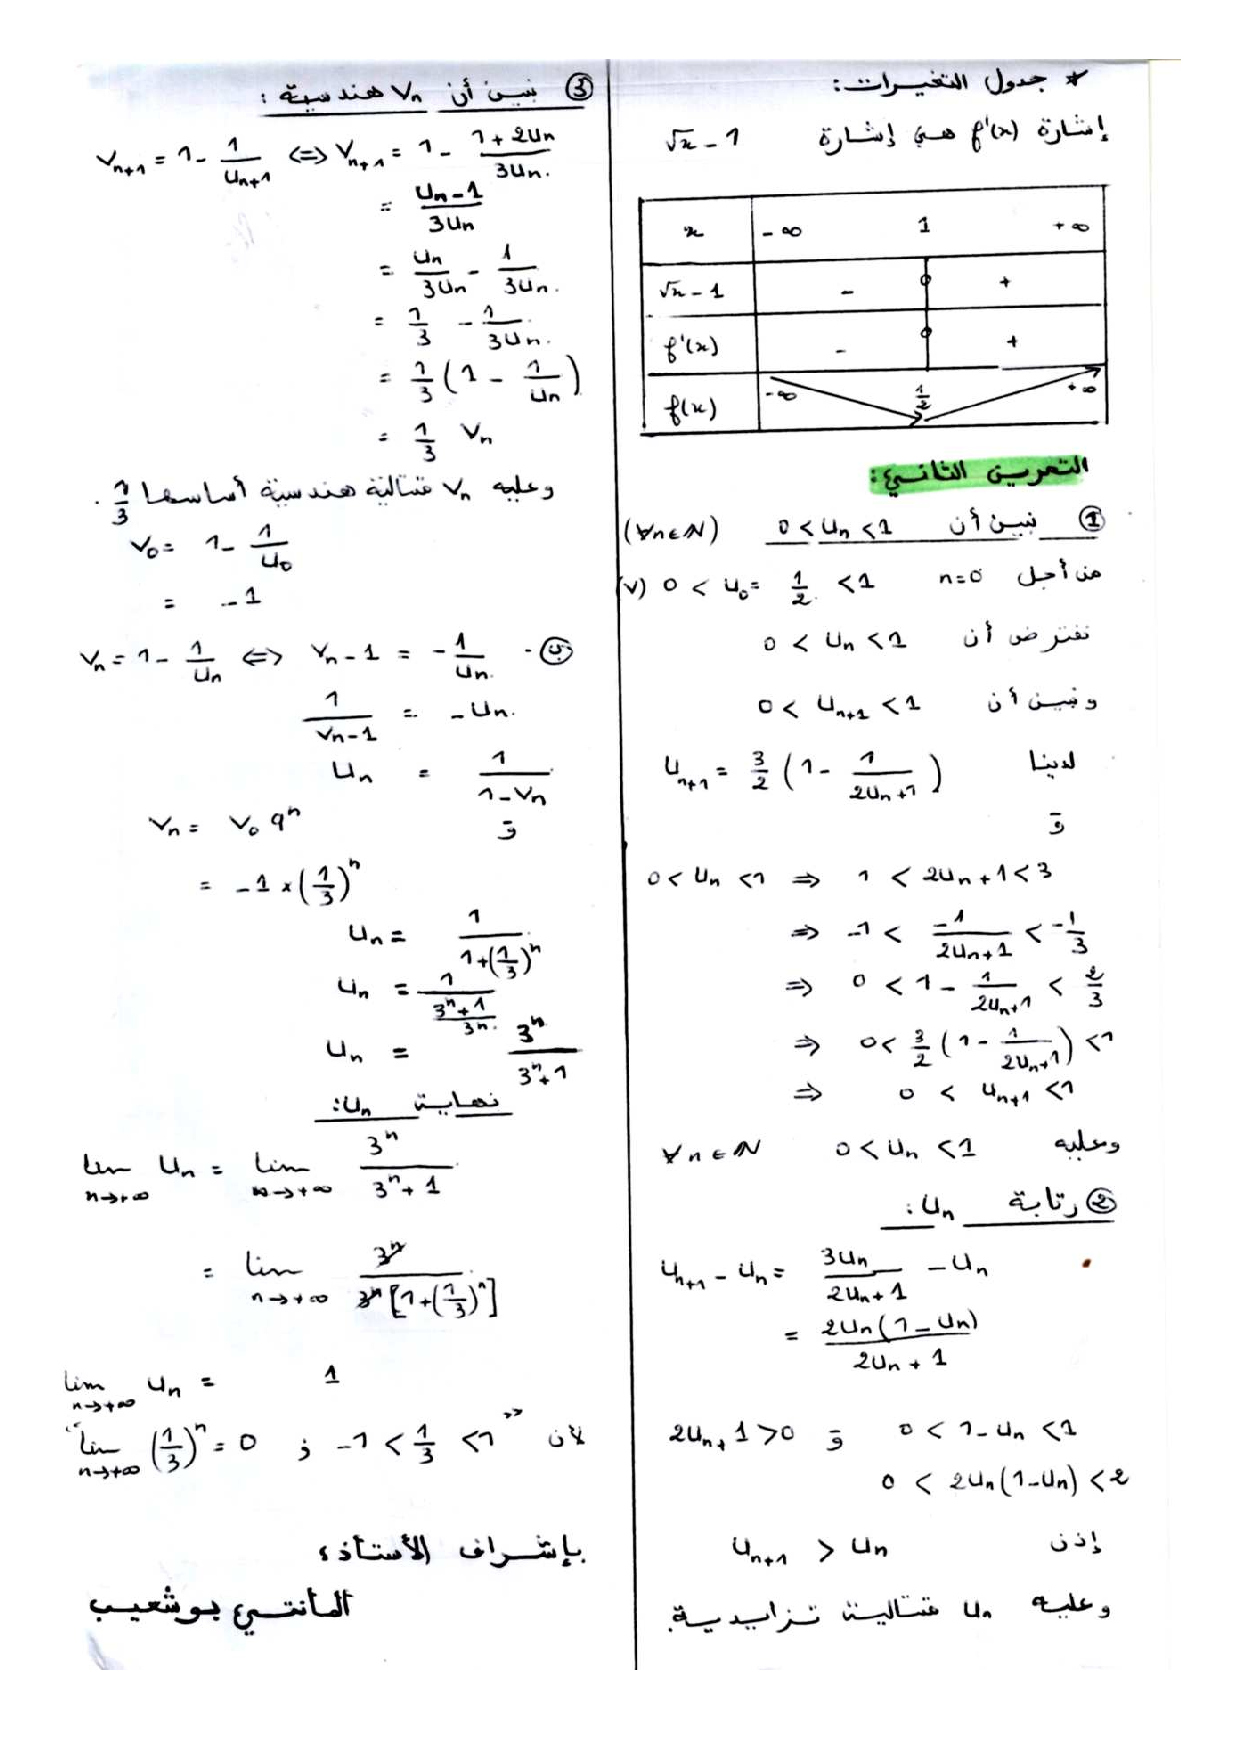 * جدول التغيرات:
إشارة f'(x) هي إشارة √x - 1
x | -∞ 1 +∞
√x - 1 | - 0 +
f'(x) | - 0 +
f(x) | -∞ 1/2 +∞
التمرين الثاني:
① نبين أن 0 < Un < 1 (∀n∈N)
من أجل n=0 0 < U0 = 1/2 < 1 (v)
نفترض أن 0 < Un < 1
ونبين أن 0 < Un+1 < 1
لدينا Un+1 = 3/2 (1 - 1/(2Un+1))
و
0 < Un < 1 ⇒ 1 < 2Un + 1 < 3
⇒ -1 < -1/(2Un+1) < -1/3
⇒ 0 < 1 - 1/(2Un+1) < 2/3
⇒ 0 < 3/2 (1 - 1/(2Un+1)) < 1
⇒ 0 < Un+1 < 1
وعليه 0 < Un < 1 ∀n∈N
② رتابة Un:
Un+1 - Un = 3Un/(2Un+1) - Un
= 2Un(1-Un)/(2Un+1)
2Un+1 > 0 و 0 < 1-Un < 1
0 < 2Un(1-Un) < 2
إذن Un+1 > Un
وعليه Un متتالية تزايدية.
③ نبين أن Vn هندسية:
Vn+1 = 1 - 1/Un+1 ⇔ Vn+1 = 1 - (1+2Un)/3Un.
= (Un-1)/3Un
= Un/3Un - 1/3Un.
= 1/3 - 1/3Un.
= 1/3 (1 - 1/Un)
= 1/3 Vn
وعليه Vn متتالية هندسية أساسها 1/3.
V0 = 1 - 1/U0
= -1
ب- Vn = 1 - 1/Un ⇔ Vn - 1 = -1/Un.
1/(Vn-1) = -Un.
Un = 1/(1-Vn)
و
Vn = V0 qⁿ
= -1 × (1/3)ⁿ
Un = 1/(1+(1/3)ⁿ)
Un = 1/((3ⁿ+1)/3ⁿ)
Un = 3ⁿ/(3ⁿ+1)
نهاية Un:
lim n→+∞ Un = lim n→+∞ 3ⁿ/(3ⁿ+1)
= lim n→+∞ 3ⁿ/(3ⁿ[1+(1/3)ⁿ])
lim n→+∞ Un = 1
لأن " -1 < 1/3 < 1 و lim n→+∞ (1/3)ⁿ = 0 "
بإشراف الأستاذ:
المانتي بوشعيب